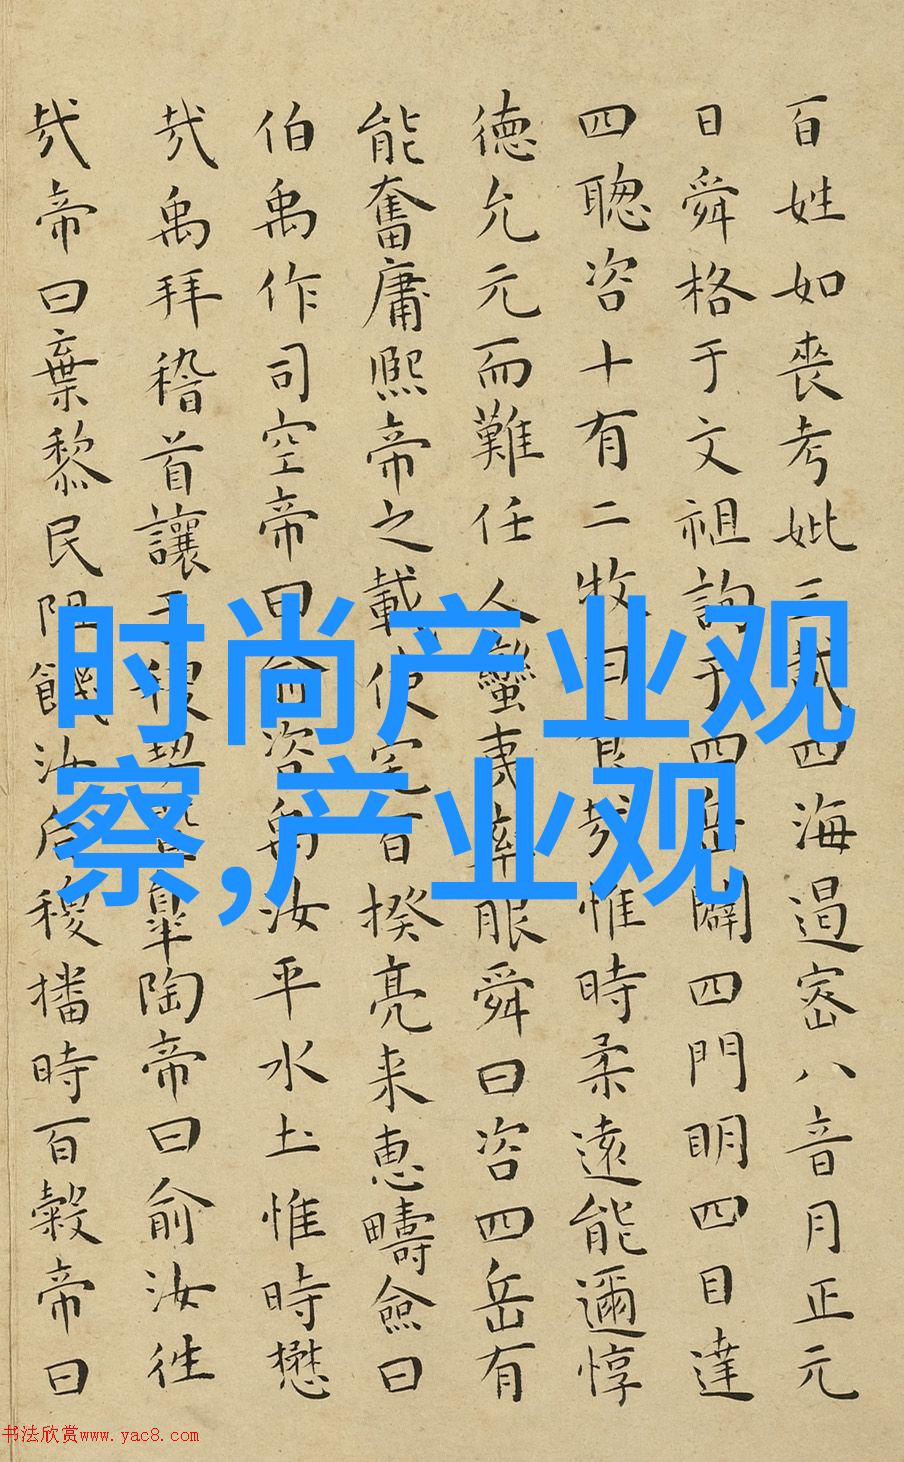 百姓如喪考妣三載四海遏密八音月正元
日舜格于文祖詢于四岳闢四門明四目達
四聰咨十有二牧曰哉惟時柔遠能邇惇
德允元而難任人蠻夷率服舜曰咨四岳有
能奮庸熙帝之載使宅百揆亮来惠疇僉曰
伯禹作司空帝曰俞咨禹汝平水土惟時懋
哉禹拜稽首讓于稷皐陶帝曰俞汝往
哉帝曰棄黎民阻饑汝后稷播時百穀帝曰
时尚产业观
察,产业观
书法欣赏www.yac8.com